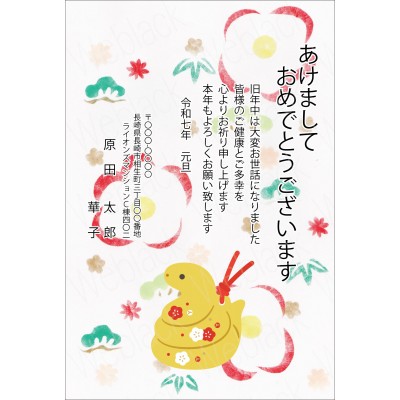 あけまして
おめでとうございます
旧年中は大変お世話になりました
皆様のご健康とご多幸を
心よりお祈り申し上げます
本年もよろしくお願い致します
令和七年　元旦
〒〇〇〇-〇〇〇〇
長崎県長崎市相生町三丁目〇〇番地
ライオンズマンションC棟四〇二
原田　太郎
華子